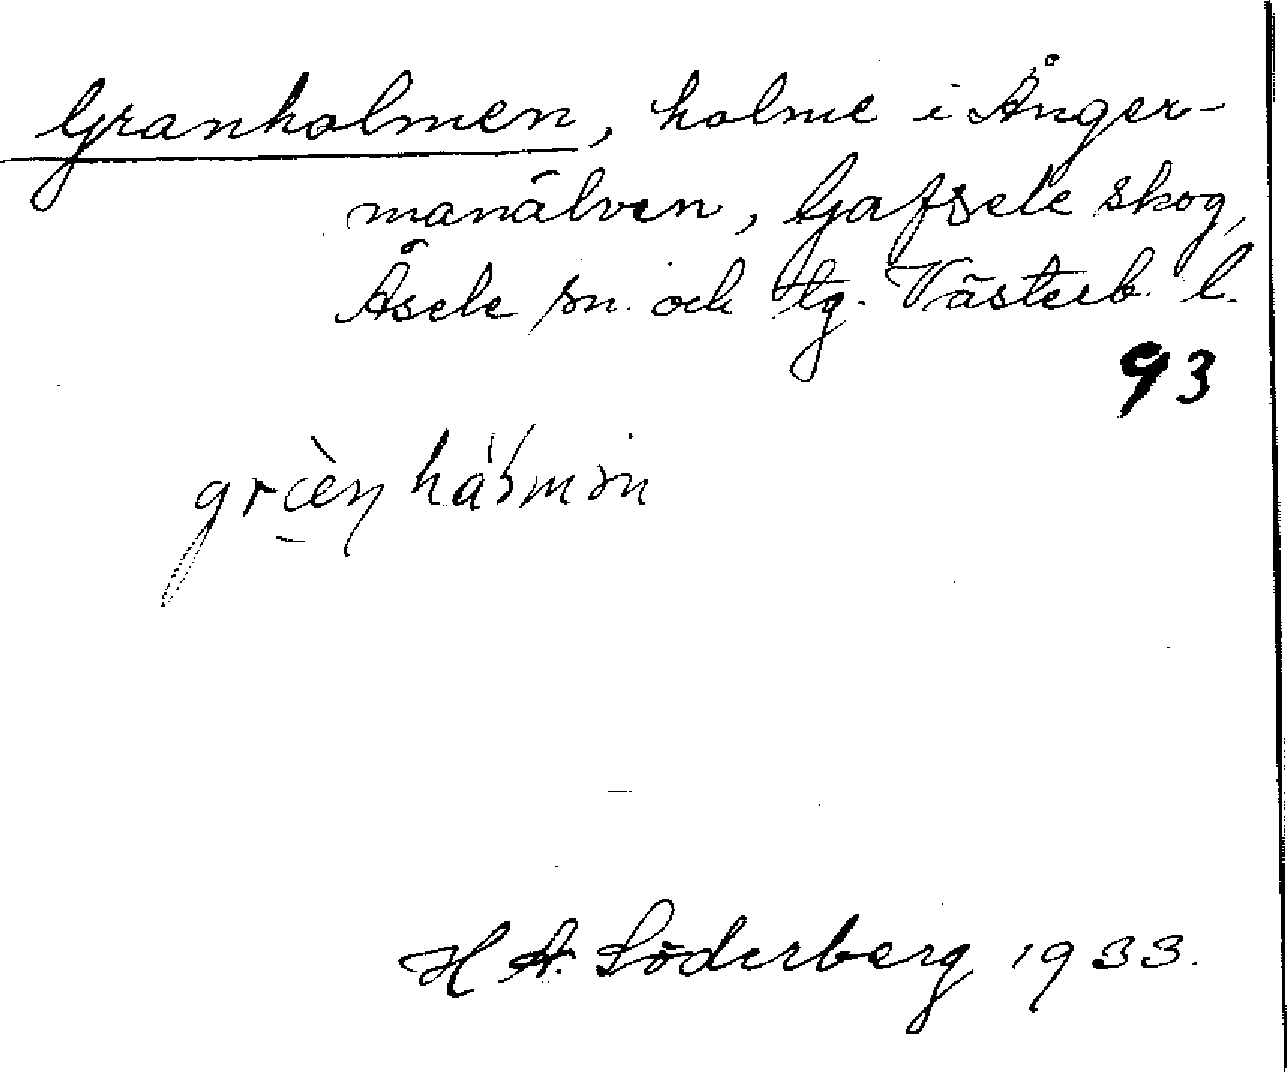 Granholmen, holme i Ånger-
manälven, Gafsele skog,
Åsele sn. och tg. Västerb. l.
93
H A. Söderberg 1933.